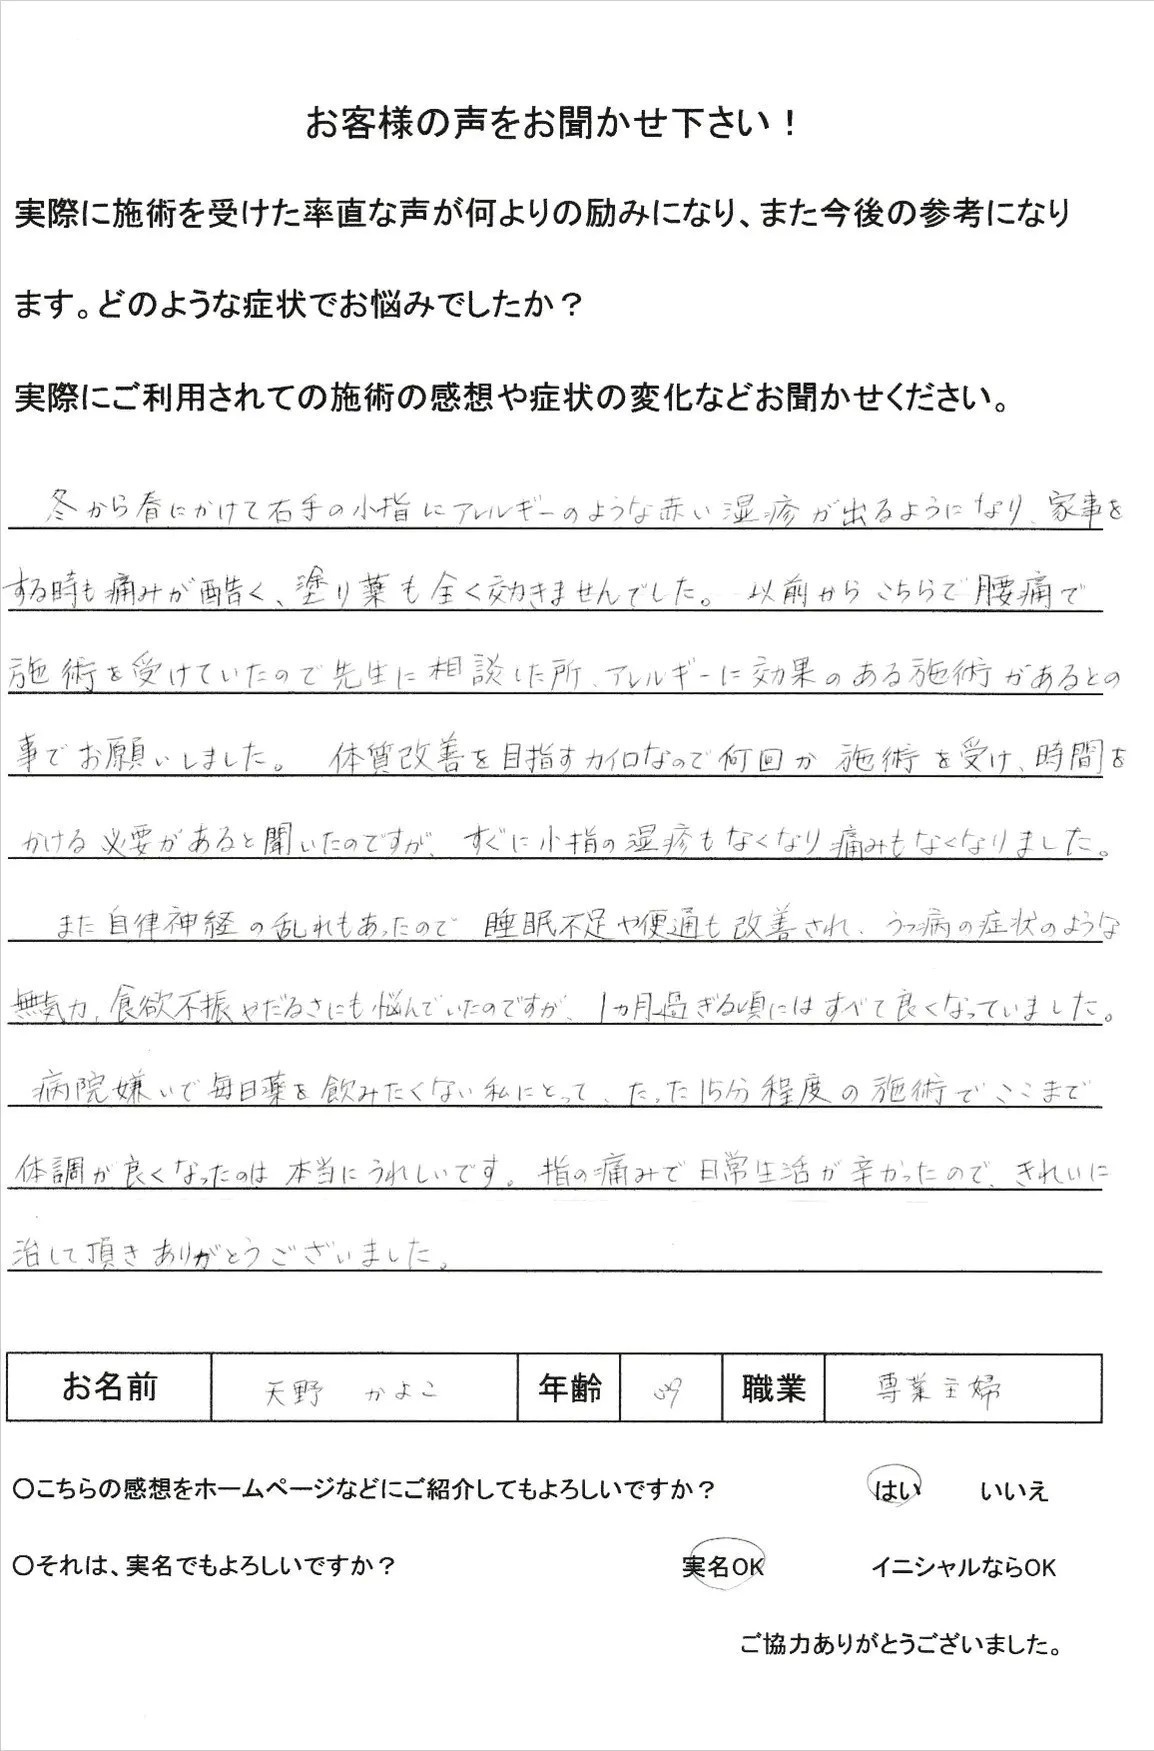 お客様の声をお聞かせ下さい！
実際に施術を受けた率直な声が何よりの励みになり、また今後の参考になり
ます。どのような症状でお悩みでしたか？
実際にご利用されての施術の感想や症状の変化などお聞かせください。
冬から春にかけて右手の小指にアレルギーのような赤い湿疹が出るようになり、家事を
する時も痛みが酷く、塗り薬も全く効きませんでした。 以前からこちらで腰痛で
施術を受けていたので先生に相談した所、アレルギーに効果のある施術があるとの
事でお願いしました。 体質改善を目指すカイロなので何回か施術を受け、時間を
かける必要があると聞いたのですが、すぐに小指の湿疹もなくなり痛みもなくなりました。
また自律神経の乱れもあったので 睡眠不足や便通も改善され、うつ病の症状のような
無気力,食欲不振やだるさにも悩んでいたのですが、1ヵ月過ぎる頃にはすべて良くなっていました。
病院嫌いで毎日薬を飲みたくない私にとって、たった15分程度の施術でここまで
体調が良くなったのは本当にうれしいです。指の痛みで日常生活が辛かったので、きれいに
治して頂きありがとうございました。
お名前 天野 かよこ 年齢 職業 専業主婦
〇こちらの感想をホームページなどにご紹介してもよろしいですか？ はい いいえ
〇それは、実名でもよろしいですか？ 実名OK イニシャルならOK
ご協力ありがとうございました。